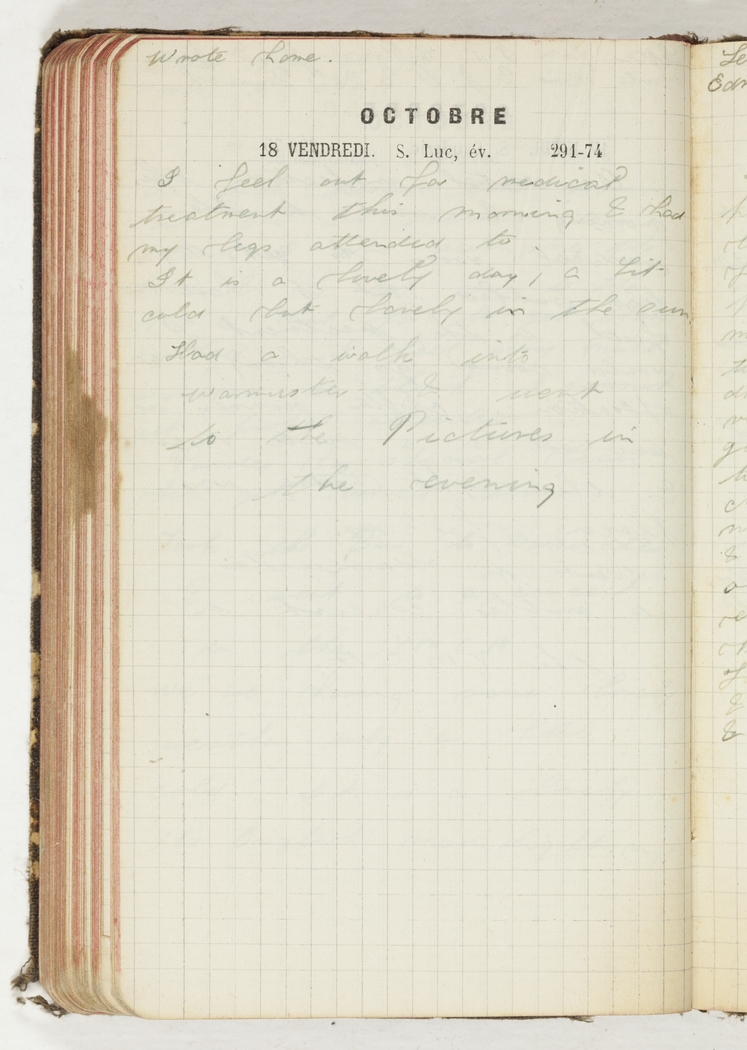 Wrote home.
OCTOBRE
18 VENDREDI. S. Luc, év. 291-74
I feel out for medical
treatment this morning & had
my legs attended to.
It is a lovely day, a bit
cold but lovely in the sun.
Had a walk into
Warminster & went
to the Pictures in
the evening